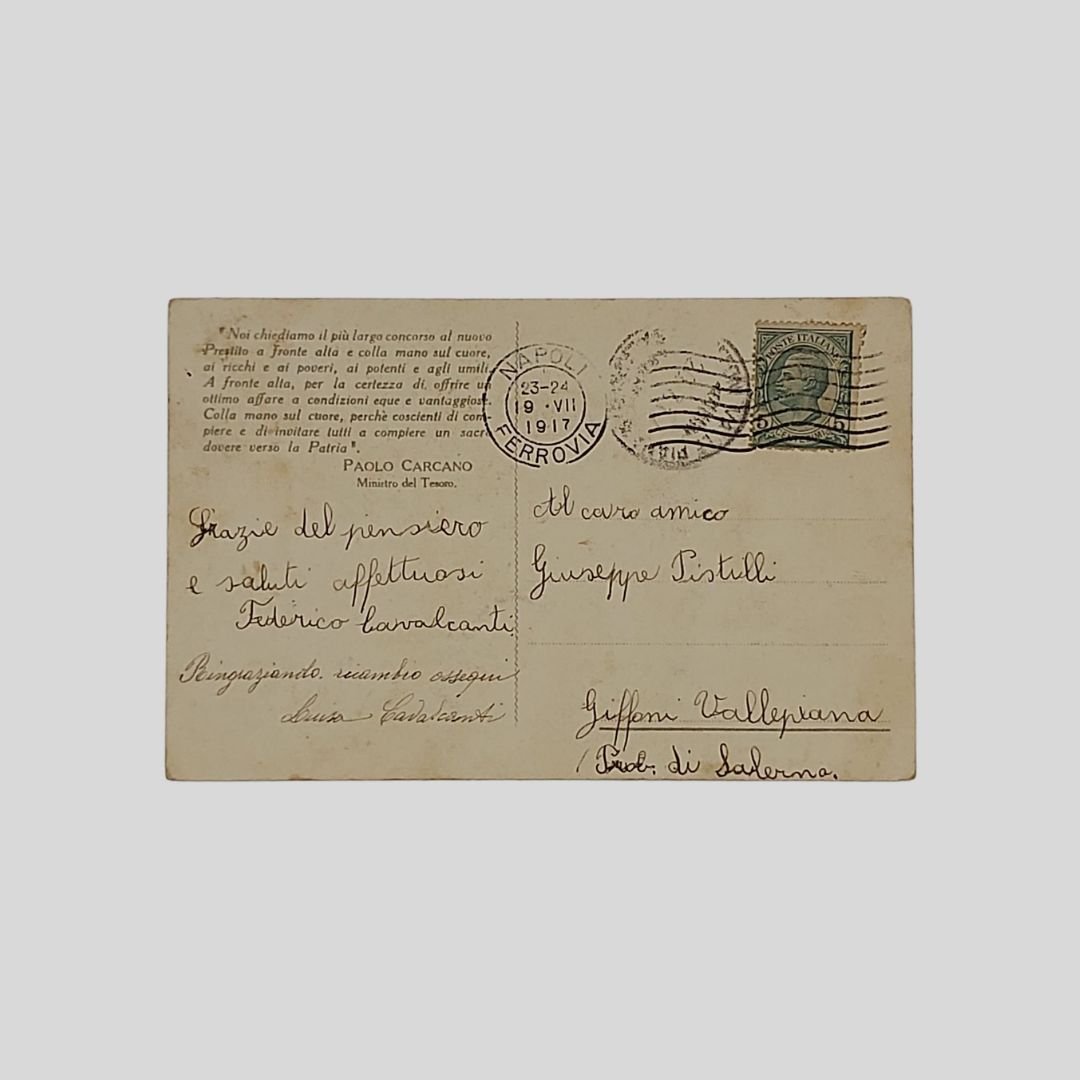 "Noi chiediamo il più largo concorso al nuovo
Prestito a fronte alta e colla mano sul cuore,
ai ricchi e ai poveri, ai potenti e agli umili.
A fronte alta, per la certezza di offrire un
ottimo affare a condizioni eque e vantaggiose.
Colla mano sul cuore, perchè coscienti di com-
piere e di invitare tutti a compiere un sacro
dovere verso la Patria".
PAOLO CARCANO
Ministro del Tesoro.
Grazie del pensiero
e saluti affettuosi
Federico Cavalcanti
Ringraziando. ricambio ossequi
Luisa Cavalcanti
NAPOLI
23-24
19 · VII
1917
FERROVIA
POSTE ITALIANE
5 5
Al caro amico
Giuseppe Pistilli
Giffoni Vallepiana
Prov. di Salerno.